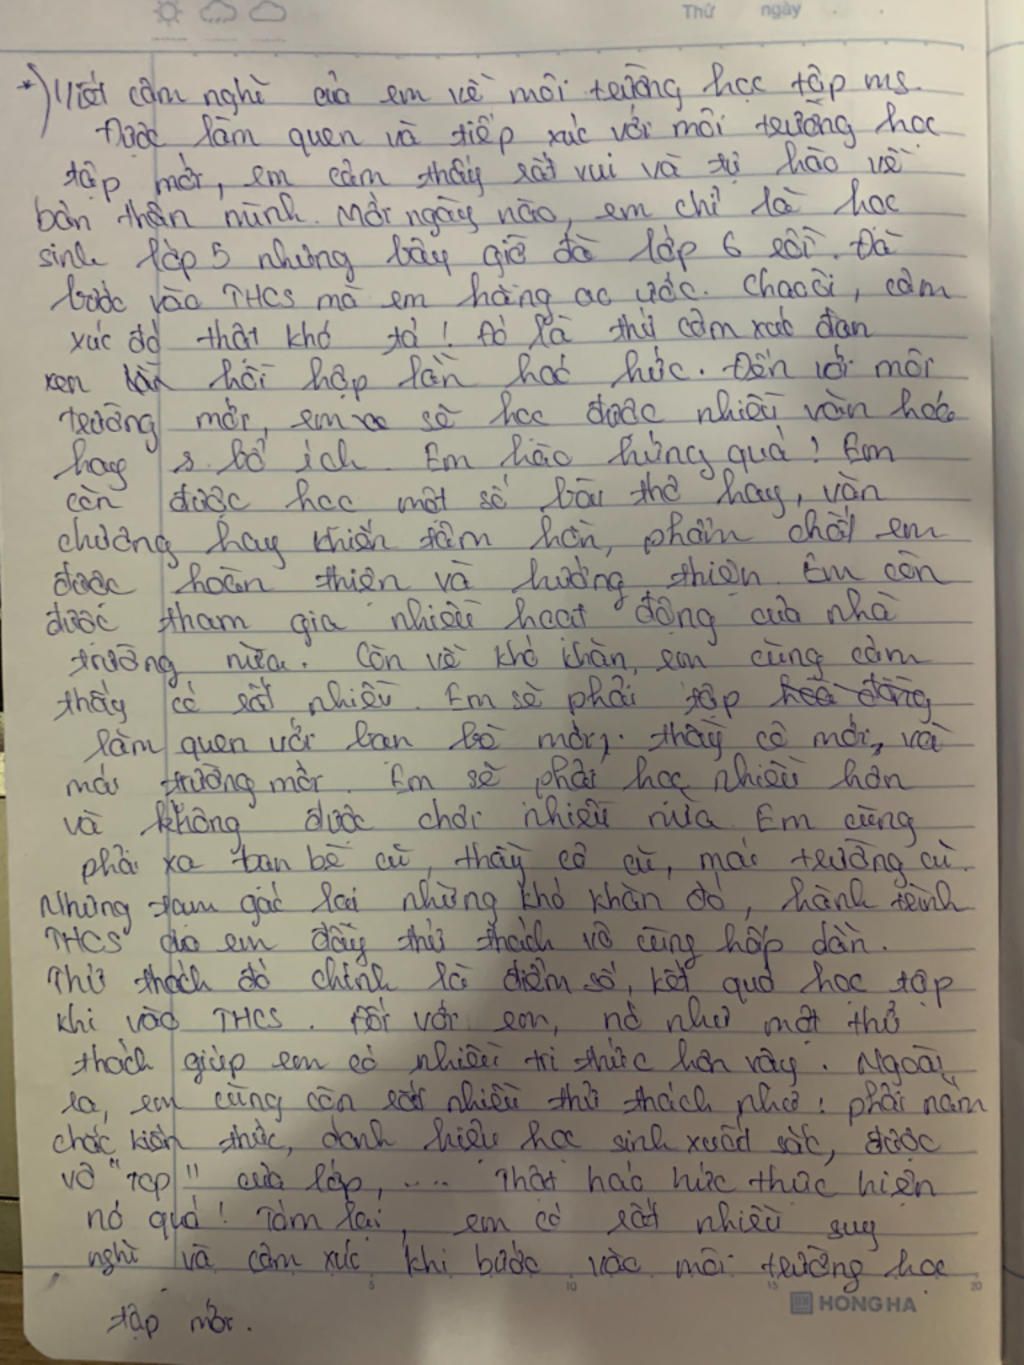 Thứ ngày
*) Viết cảm nghĩ của em về môi trường học tập ms.
Được làm quen và tiếp xúc với môi trường học
tập mới, em cảm thấy rất vui và tự hào về
bản thân mình. Mới ngày nào, em chỉ là học
sinh lớp 5 nhưng bây giờ đã lớp 6 rồi. Đã
bước vào THCS mà em hằng ao ước. Chao ôi, cảm
xúc đó thật khó tả! Đó là thứ cảm xúc đan
xen hồi hộp lẫn háo hức. Đến với môi
trường mới, em sẽ học được nhiều văn hoá
hay bổ ích. Em hào hứng quá! Em
còn được học một số bài thơ hay, văn
chương hay khiến tâm hồn, phẩm chất em
được hoàn thiện và hướng thiện. Em còn
được tham gia nhiều hoạt động của nhà
trường nữa. Còn về khó khăn, em cũng cảm
thấy có rất nhiều. Em sẽ phải tập
làm quen với bạn bè mới, thầy cô mới, và
mái trường mới. Em sẽ phải học nhiều hơn
và không được chơi nhiều nữa. Em cũng
phải xa bạn bè cũ, thầy cô cũ, mái trường cũ.
Nhưng tạm gác lại những khó khăn đó, hành trình
THCS của em đầy thử thách vô cùng hấp dẫn.
Thử thách đó chính là điểm số, kết quả học tập
khi vào THCS. Đối với em, nó như một thử
thách giúp em có nhiều tri thức hơn vậy. Ngoài
ra, em cũng còn rất nhiều thử thách như: phải nắm
chắc kiến thức, danh hiệu học sinh xuất sắc, được
vô "Top" của lớp, .... Thật háo hức thực hiện
nó quá! Tóm lại, em có rất nhiều suy
nghĩ và cảm xúc khi bước vào môi trường học
tập mới.
5 10 15 20
HONG HA